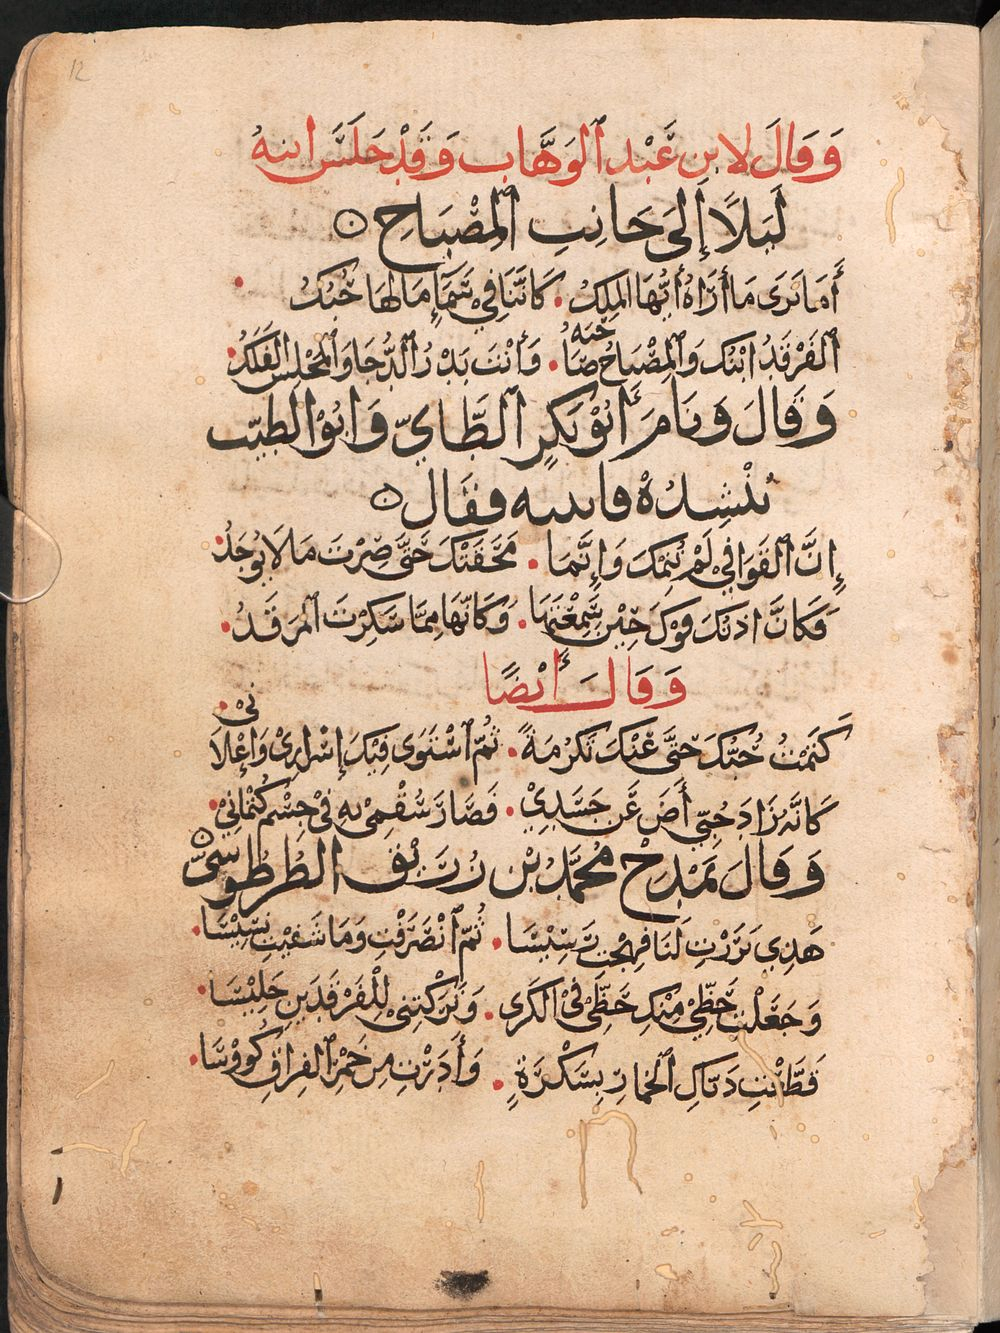 12
وَقَالَ لابن عَبْد الوَهَّاب وَقَدْ جَلَسَ ابنه
لَيلًا إلَى جَانِبِ المِصْبَاحِ ن
أَمَا تَرَى مَا أَرَاهُ أَيُّهَا المَلِكُ . كَانَّنَا فِي سَمَاءٍ مَا لهَا حُبُكُ .
الفَرْقَدُ ابْنُكَ وَالمِصْبَاحُ صَاحِبُهُ . وَأَنْتَ بَدْرُ الدُّجَا وَالمَجْلِس الفَلَكُ .
وَقَالَ وَنَامَ أَبُو بَكرٍ الطَّايِيّ وَابُو الطيّب
يُنْشِدُهُ فانبهه فقَالَ ن
إِنَّ القَوَافِي لَمْ تُنِمْكَ وَإِنَّمَا . مَحَقَتْكَ حَتَّى صِرْتَ مَا لَا يُوجَدُ .
فَكَانَّ اذنكَ فوكَ حِيْنَ سَمِعْتَهَا . وَكَانّهَا مِمَّا سَكِرْتَ المَرقَدُ .
وَقَالَ أيْضًا
كَتَمْتُ حُبَّكَ حَتَّى عَنْكَ تَكْرُمَةً . ثُمّ اسْتَوَى فِيْكَ إِسْرَارِيْ وَإعْلَانِيْ .
كَانّهُ زَادَ حَتّى فَاضَ عَن جَسَدِيْ . فَصَارَ سُقْمِيْ بِهِ فِي جِسْمِ كِتْمَانِيْ .
وَقَالَ يَمْدَحُ مُحَمَّدَ بْن رُزَيْق الطُرطُوسيَّ ن
هَذِي بَرَزْتِ لَنَا فهِجْتِ رَسِيْسَا . ثُمّ انْصَرَفْتِ وَمَا شَفَيْتِ نَسِيْسَا .
وَجَعَلْتِ حَظِّي مِنْكِ حَظِّي فِي الكَرَى . وَتَرَكْتِنِيْ لِلْفَرقَدَينِ جَلِيْسَا .
قَطَّعْتِ ذَيّاكِ الخُمَارَ بِسَكْرَةٍ . وَأَدَرْتِ مِن خَمْرِ الفِرَاقِ كُؤوْسَا .